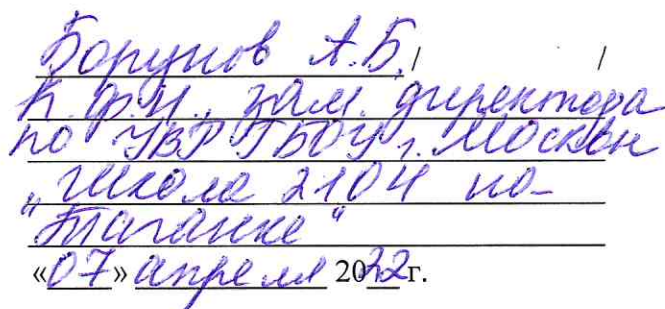 Борунов А.Б. / /
к.ф.н., зам. директора
по УВР ГБОУ г. Москвы
"Школа 2104 на
Таганке"
«07» апреля 2022г.